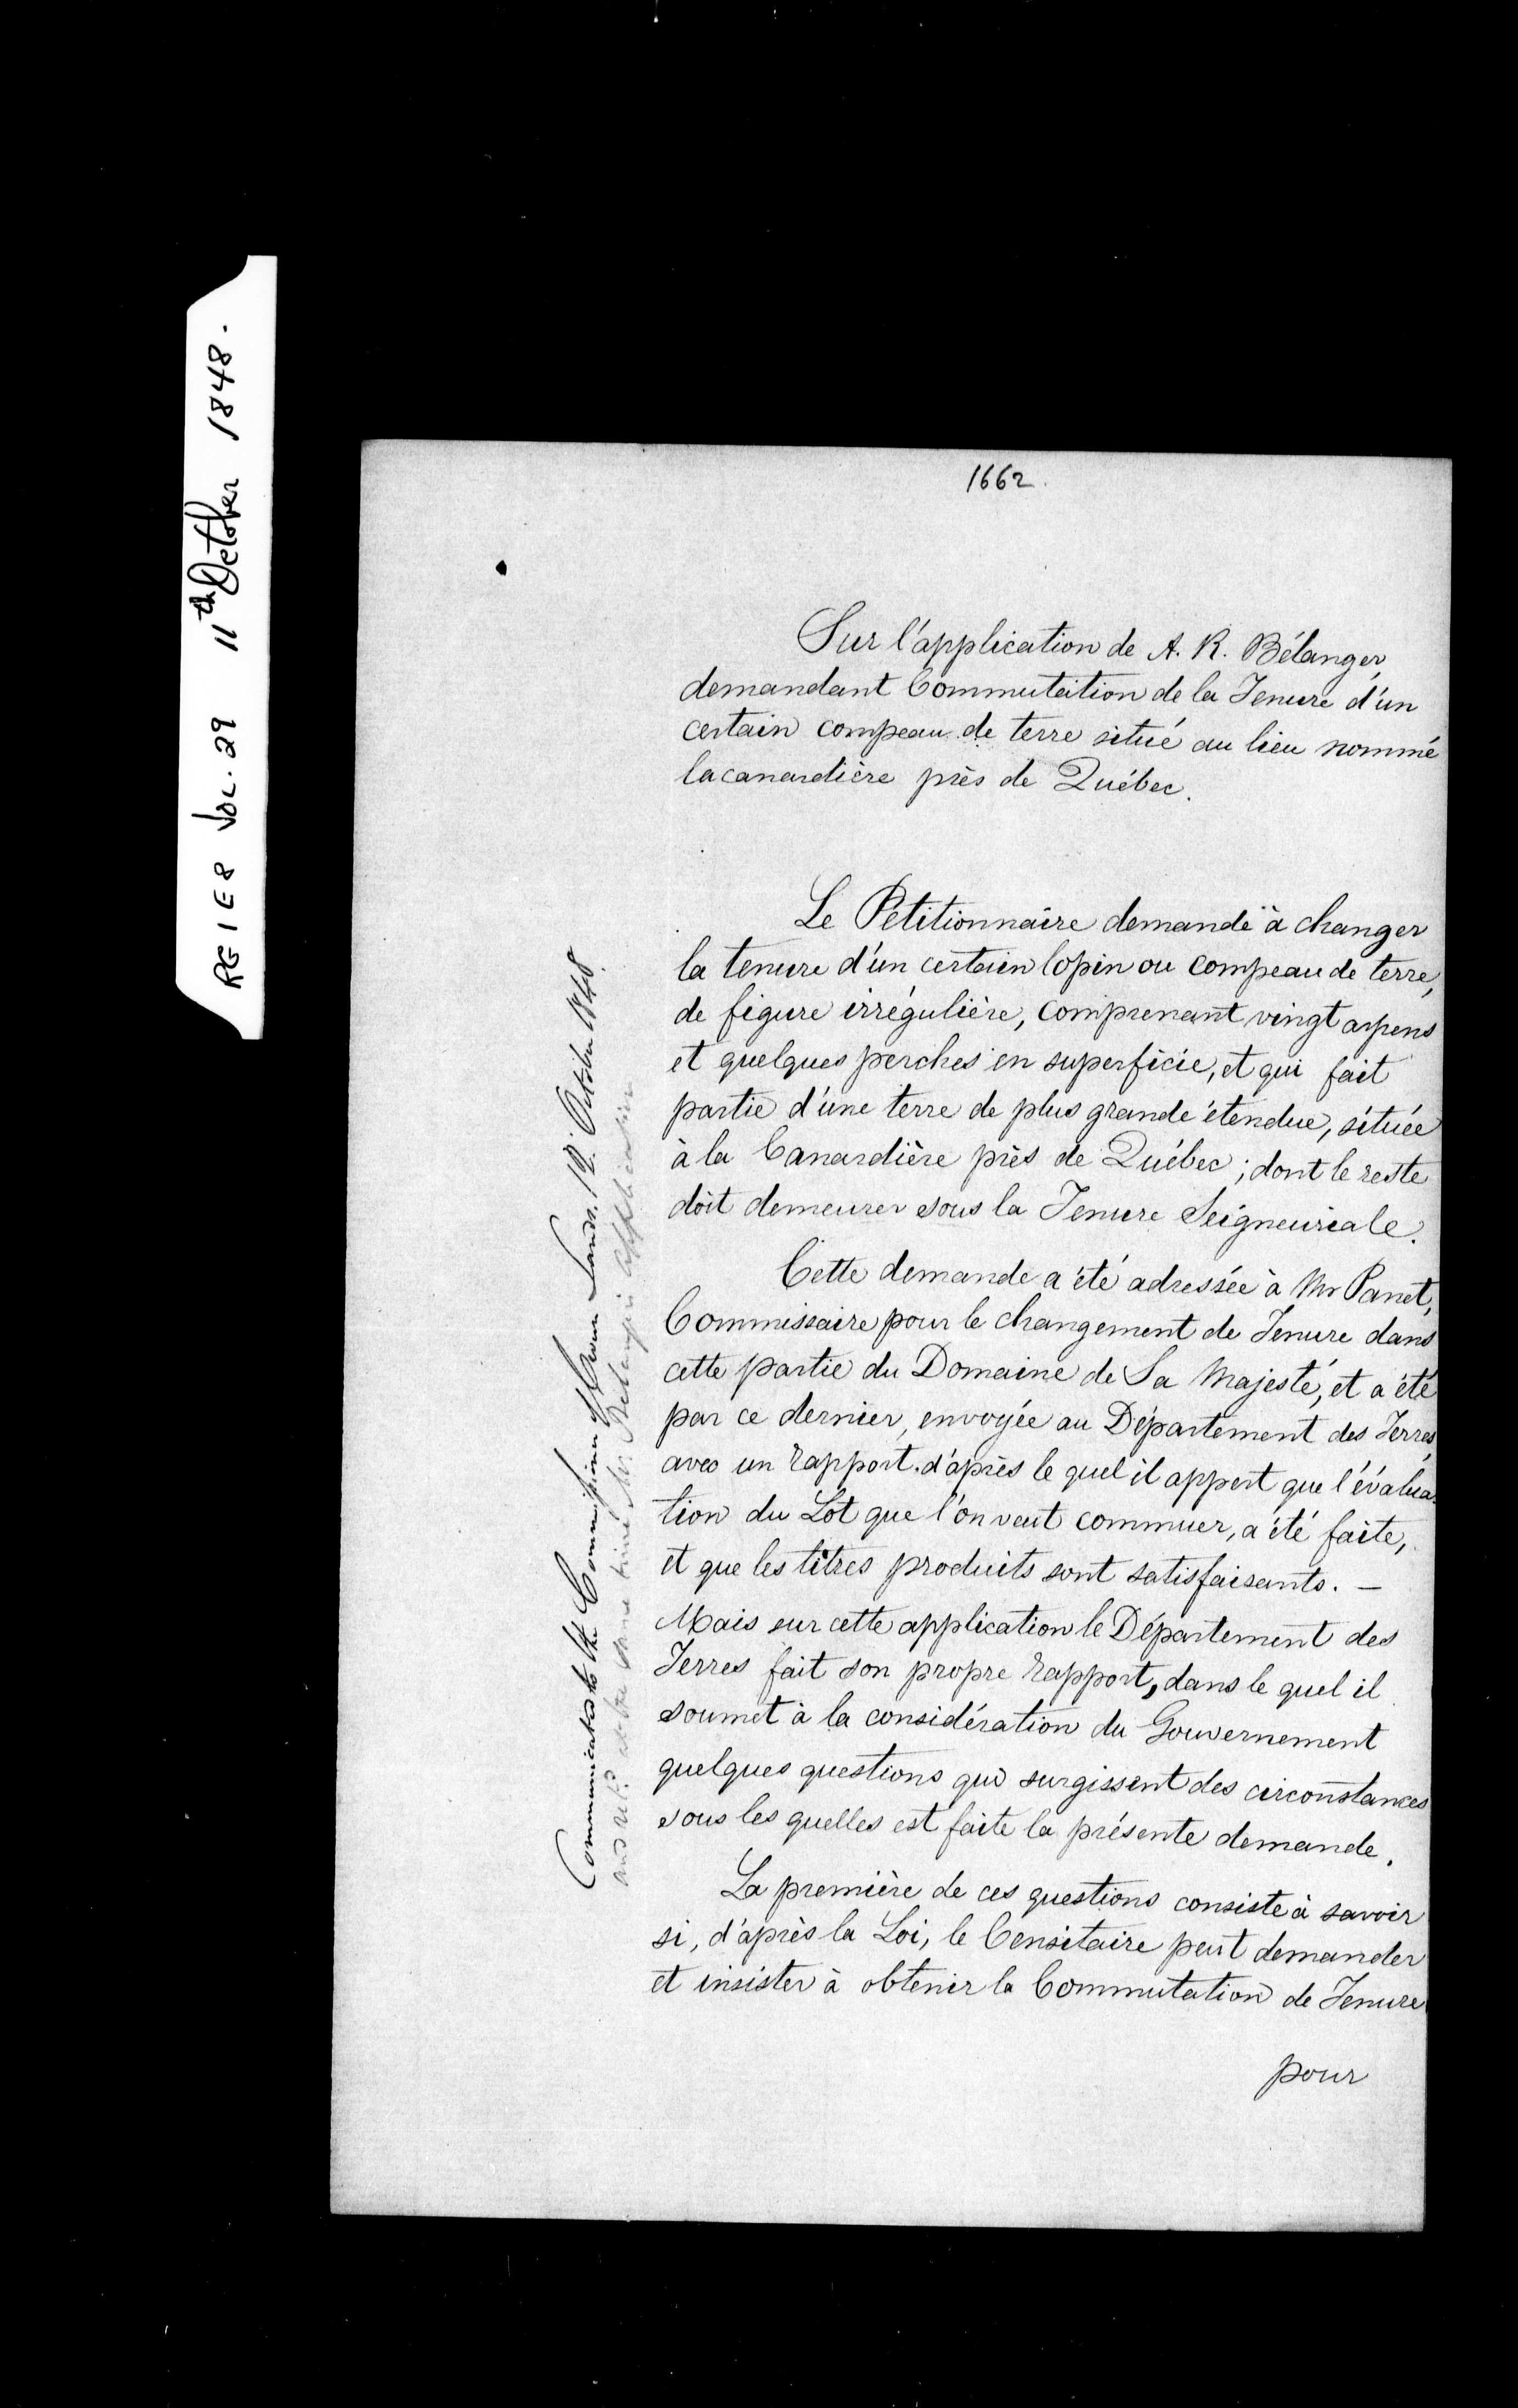 RG 1 E 8 Vol. 29 11th October 1848.
1662.
Sur l'application de A. R. Bélanger,
demandant Commutation de la Tenure d'un
certain compeau de terre situé au lieu nommé
lacanardière près de Québec.
Le Pétitionnaire demande à changer
la tenure d'un certain lopin ou compeau de terre,
de figure irrégulière, comprenant vingt arpens
et quelques perches en superficie, et qui fait
partie d'une terre de plus grande étendue, située
à la Canardière près de Québec; dont le reste
doit demeurer sous la Tenure Seigneuriale.
Cette demande a été adressée à Mr Panet,
Commissaire pour le changement de Tenure dans
cette partie du Domaine de Sa Majesté, et a été
par ce dernier, envoyée au Département des Terres,
avec un rapport d'après le quel il appert que l'évalua-
tion du Lot que l'on veut commuer, a été faite,
et que les titres produits sont satisfaisants. —
Mais sur cette application le Département des
Terres fait son propre rapport, dans le quel il
soumet à la considération du Gouvernement
quelques questions qui surgissent des circonstances
sous les quelles est faite la présente demande.
La première de ces questions consiste à savoir
si, d'après la Loi, le Censitaire peut demander
et insister à obtenir la Commutation de Tenure
pour
Communicated to the Commissioner of Crown Lands. 12. October 1848.
and at the same time Mr. Belanger's application